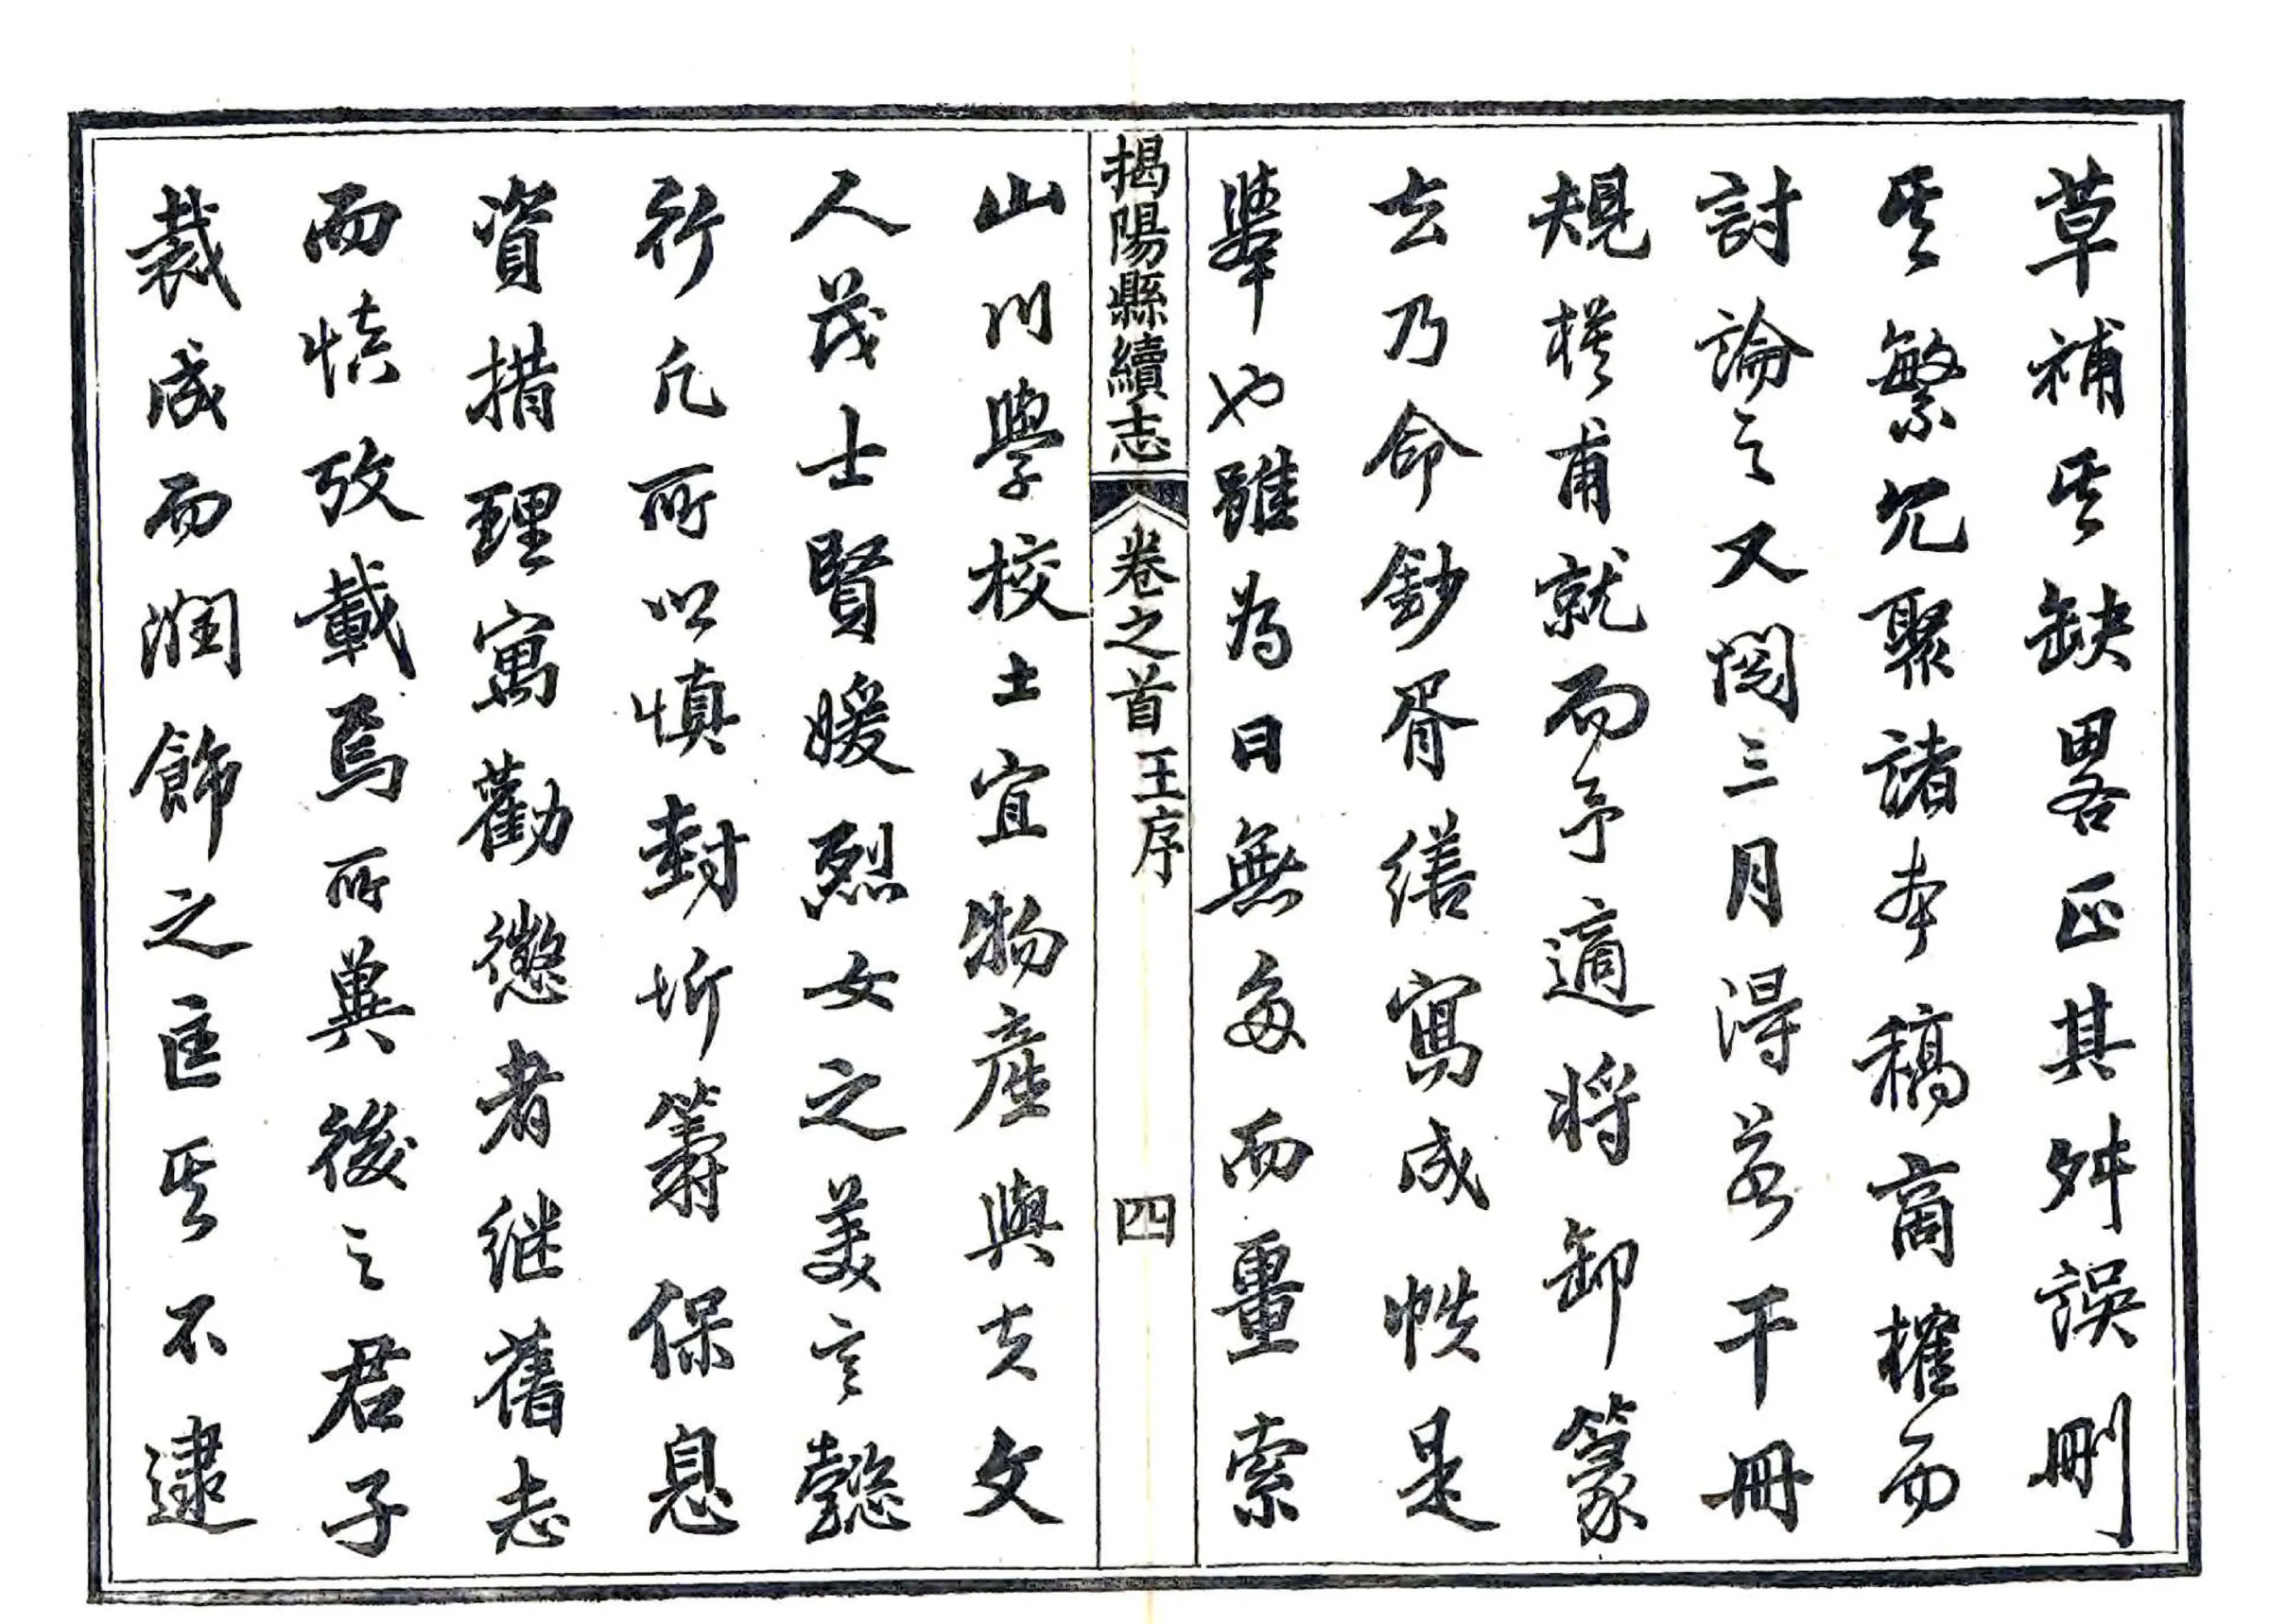 草補其缺畧正其舛誤刪
其繁冗聚諸本稿商榷而
討論之又閱三月得若干冊
規模甫就而予適將卸篆
去乃命鈔胥繕寫成帙是
舉也雖為日無多而畺索
揭陽縣續志
卷之首
王序
四
山川學校土宜物產與夫文
人茂士賢媛烈女之美言懿
行凡所以慎封圻籌保息
資措理寓勸懲者继舊志
而慎攷載焉所兾後之君子
裁成而潤飾之匡其不逮